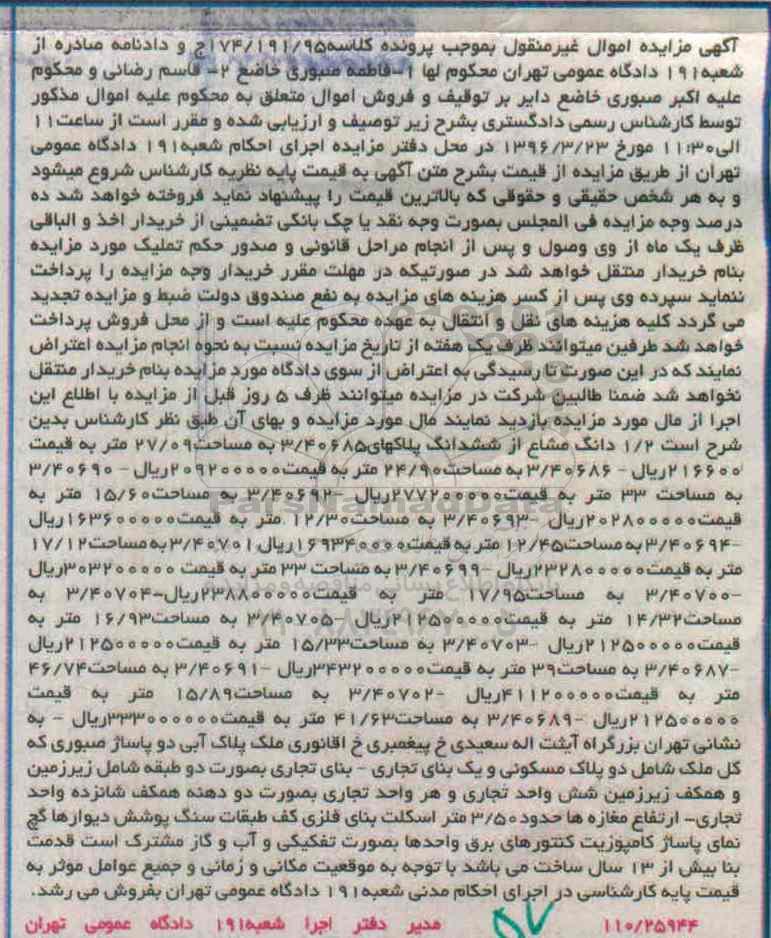 آگهی مزایده اموال غیرمنقول بموجب پرونده کلاسه۱۷۴/۱۹۱/۹۵ج و دادنامه صادره از
شعبه۱۹۱ دادگاه عمومی تهران محکوم لها ۱-فاطمه صبوری خاضع ۲- قاسم رضائی و محکوم
علیه اکبر صبوری خاضع دایر بر توقیف و فروش اموال متعلق به محکوم علیه اموال مذکور
توسط کارشناس رسمی دادگستری بشرح زیر توصیف و ارزیابی شده و مقرر است از ساعت۱۱
الی۱۱:۳۰ مورخ ۱۳۹۶/۳/۲۳ در محل دفتر مزایده اجرای احکام شعبه۱۹۱ دادگاه عمومی
تهران از طریق مزایده از قیمت بشرح متن آگهی به قیمت پایه نظریه کارشناس شروع میشود
و به هر شخص حقیقی و حقوقی که بالاترین قیمت را پیشنهاد نماید فروخته خواهد شد ده
درصد وجه مزایده فی المجلس بصورت وجه نقد یا چک بانکی تضمینی از خریدار اخذ و الباقی
ظرف یک ماه از وی وصول و پس از انجام مراحل قانونی و صدور حکم تملیک مورد مزایده
بنام خریدار منتقل خواهد شد در صورتیکه در مهلت مقرر خریدار وجه مزایده را پرداخت
ننماید سپرده وی پس از کسر هزینه های مزایده به نفع صندوق دولت ضبط و مزایده تجدید
می گردد کلیه هزینه های نقل و انتقال به عهده محکوم علیه است و از محل فروش پرداخت
خواهد شد طرفین میتوانند ظرف یک هفته از تاریخ مزایده نسبت به نحوه انجام مزایده اعتراض
نمایند که در این صورت تا رسیدگی به اعتراض از سوی دادگاه مورد مزایده بنام خریدار منتقل
نخواهد شد ضمنا طالبین شرکت در مزایده میتوانند ظرف ۵ روز قبل از مزایده با اطلاع این
اجرا از مال مورد مزایده بازدید نمایند مال مورد مزایده و بهای آن طبق نظر کارشناس بدین
شرح است ۱/۲ دانگ مشاع از ششدانگ پلاکهای۳/۴۰۶۸۵ به مساحت۲۷/۰۹ متر به قیمت
۲۱۶۶۰۰ریال - ۳/۴۰۶۸۶ به مساحت۲۴/۹۰ متر به قیمت۲۰۹۲۰۰۰۰۰ریال - ۳/۴۰۶۹۰
به مساحت ۳۳ متر به قیمت۲۷۷۲۰۰۰۰۰ریال -۳/۴۰۶۹۲ به مساحت۱۵/۶۰ متر به
قیمت۲۰۲۸۰۰۰۰۰ریال -۳/۴۰۶۹۳ به مساحت۱۲/۳۰ متر به قیمت۱۶۳۶۰۰۰۰۰ریال
-۳/۴۰۶۹۴ به مساحت۱۲/۴۵ متر به قیمت۱۶۹۳۴۰۰۰۰ریال ۳/۴۰۷۰۱ به مساحت۱۷/۱۲
متر به قیمت۲۳۲۸۰۰۰۰۰ریال -۳/۴۰۶۹۹ به مساحت ۳۳ متر به قیمت ۳۰۳۲۰۰۰۰۰ریال
-۳/۴۰۷۰۰ به مساحت۱۷/۹۵ متر به قیمت۲۳۸۸۰۰۰۰۰ریال-۳/۴۰۷۰۴ به
مساحت۱۴/۳۲ متر به قیمت۲۱۲۵۰۰۰۰۰ریال -۳/۴۰۷۰۵ به مساحت۱۶/۹۳ متر به
قیمت۲۱۲۵۰۰۰۰۰ریال -۳/۴۰۷۰۳ به مساحت۱۵/۳۳ متر به قیمت۲۱۲۵۰۰۰۰۰ریال
-۳/۴۰۶۸۷ به مساحت۳۹ متر به قیمت۳۴۳۲۰۰۰۰۰ریال -۳/۴۰۶۹۱ به مساحت۴۶/۷۴
متر به قیمت۴۱۱۲۰۰۰۰۰ریال -۳/۴۰۷۰۲ به مساحت۱۵/۸۹ متر به قیمت
۲۱۲۵۰۰۰۰۰ریال -۳/۴۰۶۸۹ به مساحت۴۱/۶۳ متر به قیمت۳۳۳۰۰۰۰۰۰ریال - به
نشانی تهران بزرگراه آیت اله سعیدی خ پیغمبری خ اقانوری ملک پلاک آبی دو پاساژ صبوری که
کل ملک شامل دو پلاک مسکونی و یک بنای تجاری - بنای تجاری بصورت دو طبقه شامل زیرزمین
و همکف زیرزمین شش واحد تجاری و هر واحد تجاری بصورت دو دهنه همکف شانزده واحد
تجاری- ارتفاع مغازه ها حدود۳/۵۰ متر اسکلت بنای فلزی کف طبقات سنگ پوشش دیوارها گچ
نمای پاساژ کامپوزیت کنتورهای برق واحدها بصورت تفکیکی و آب و گاز مشترک است قدمت
بنا بیش از ۱۳ سال ساخت می باشد با توجه به موقعیت مکانی و زمانی و جمیع عوامل موثر به
قیمت پایه کارشناسی در اجرای احکام مدنی شعبه۱۹۱ دادگاه عمومی تهران بفروش می رسد.
۱۱۰/۲۵۹۴۴ مدیر دفتر اجرا شعبه۱۹۱ دادگاه عمومی تهران